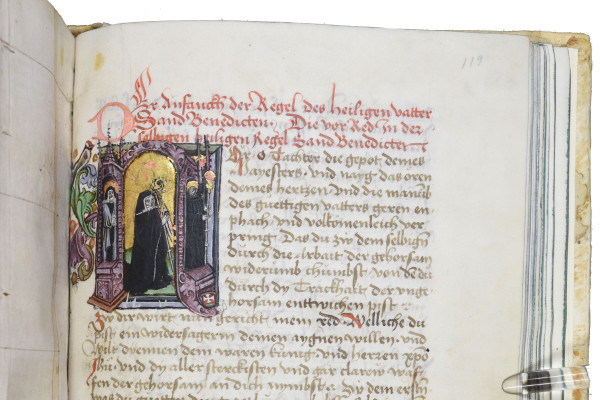 119
Der Anfanckh der Regel des heiligen vatter
Sand Benedicten. Die vor Red in der
selbigen heiligen Regel Sand Benedicten
Ör O Tachter die gepot deines
Maysters vnd nayg das oren
deines hertzen vnd die manūg
des guettigen vatters geren en-
phach vnd volkömenleich ver
pring. Das du zw dem selbigñ
durch die arbait der gehorsam
widerumb chumbst von de du
durch dy Trackhait der vnge
horsam entwichen pist.
Zw dir wirt nun gericht mein red Welliche du
pist ein widersagerin deinen aygnen willen. vnd
wilt dyennen dem waren künig vnd herren xp̄o
Jhū. vnd dy aller sterckisten vnd gar clarew waf
fen der gehorsam an dich nimbst. Zw dem ersten